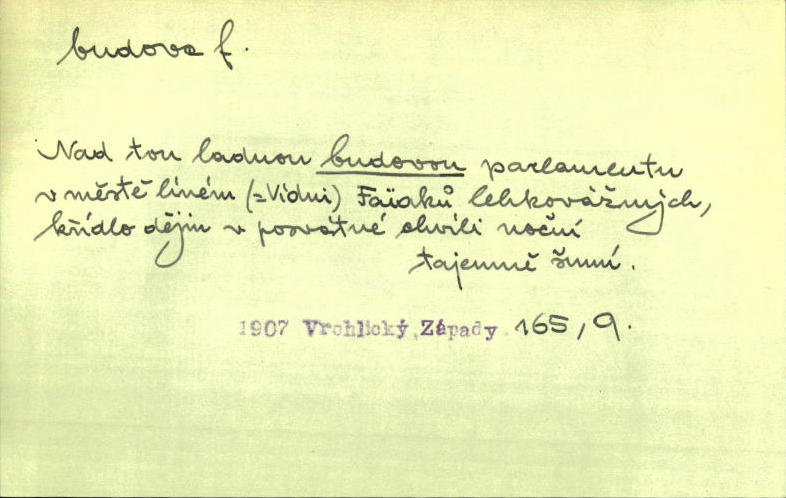 budova f.
Nad tou ladnou budovou parlamentu
v městě líném (=Vídni) Faïaků lehkovážných,
křídlo dějin v posvátné chvíli noční
tajemně šumí.
1907 Vrchlický, Západy 165, 9.